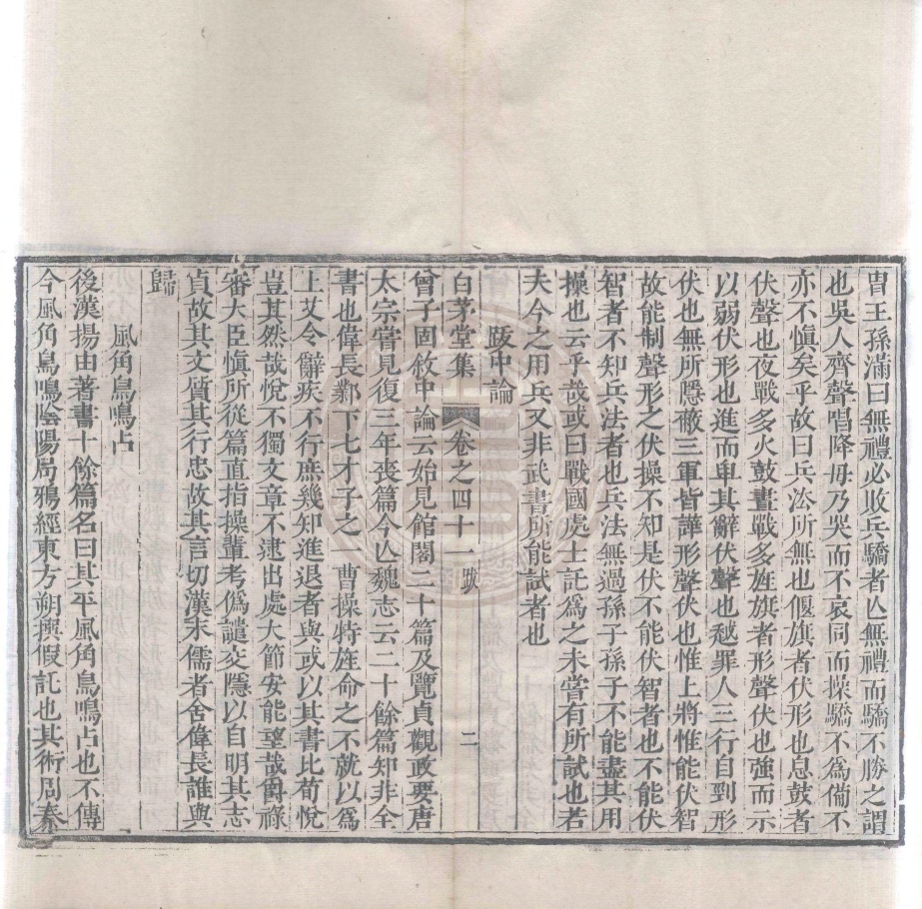 胄王孫滿曰無禮必敗兵驕者亾無禮而驕不勝之謂
也吳人齊聲唱降毋乃哭而不哀同而操驕不爲備不
亦不愼矣乎故曰兵法所無也偃旗者伏形也息鼓者
伏聲也夜戰多火鼓晝戰多旌旗者形聲伏也強而示
以弱伏形也進而卑其辭伏聲也越罪人三行自剄形
伏也無所隱蔽三軍皆譁形聲伏也惟上將惟能伏智
故能制聲形之伏操不知是伏不能伏智者也不能伏
智者不知兵法者也兵法無過孫子孫子不能盡其用
操也云乎哉或曰戰國處士託爲之未嘗有所試也若
夫今之用兵又非武書所能試者也
跋中論
白茅堂集 卷之四十一 跋 二
曾子固敘中論云始見館閣二十篇及覽貞觀政要唐
太宗嘗見復三年喪篇今亾魏志云二十餘篇知非全
書也偉長鄴下七才子之一曹操特旌命之不就以爲
上艾令辭疾不行庶幾知進退者與或以其書比荀悅
豈其然哉悅不獨文章不逮出處大節安能望哉爵祿
審大臣愼所從篇直指操輩考僞譴交隱以自明其志
貞故其文質其行忠故其言切漢末儒者舍偉長誰與
歸
風角鳥鳴占
後漢揚由著書十餘篇名曰其平風角鳥鳴占也不傳
今風角鳥鳴陰陽局鴉經東方朔撰假託也其術周秦